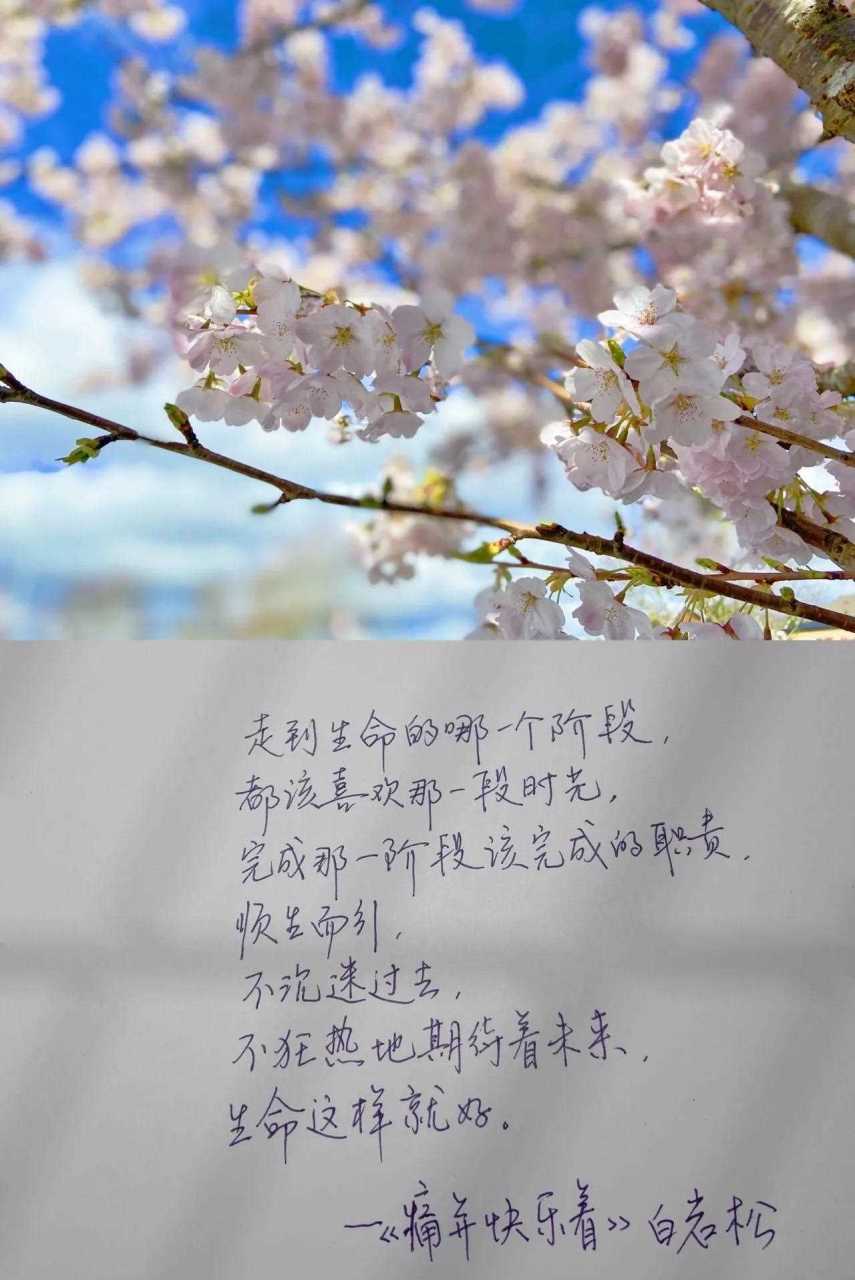 走到生命的哪一个阶段，
都该喜欢那一段时光，
完成那一阶段该完成的职责，
顺生而引，
不沉迷过去，
不狂热地期待着未来，
生命这样就好。
—《痛并快乐着》白岩松